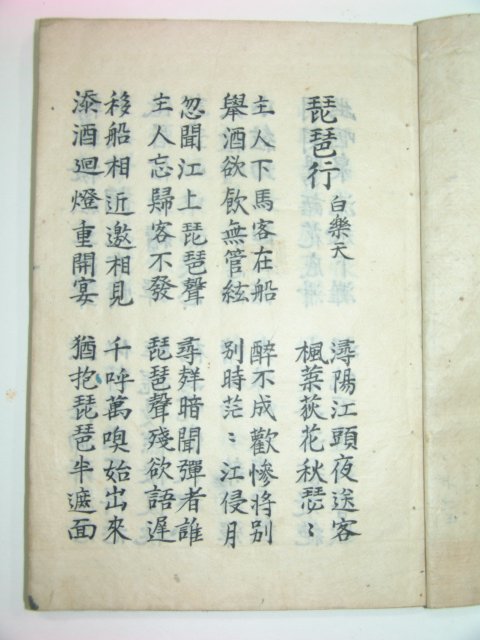 琵琶行 白樂天
潯陽江頭夜送客
楓葉荻花秋瑟〻
主人下馬客在船
舉酒欲飮無管絃
醉不成歡慘將別
別時茫〻江侵月
忽聞江上琵琶聲
主人忘歸客不發
尋聲暗聞彈者誰
琵琶聲殘欲語遲
移船相近邀相見
添酒廻燈重開宴
千呼萬喚始出來
猶抱琵琶半遮面